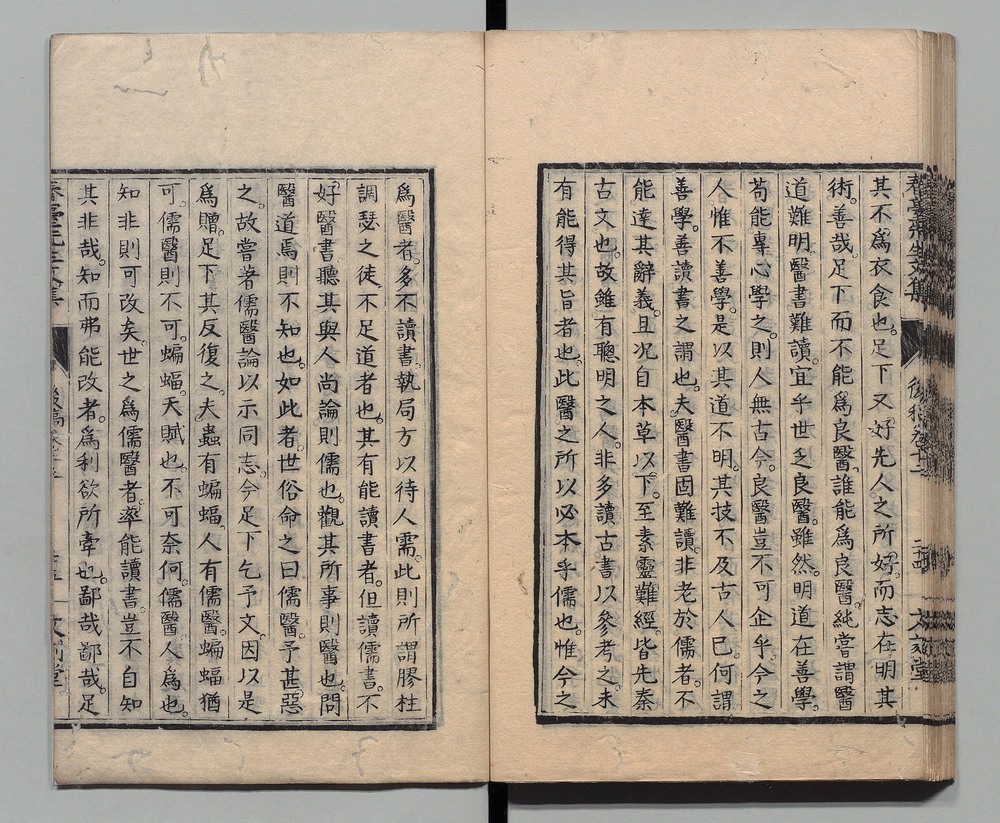 其不爲衣食也。足下又好先人之所好。而志在明其
術。善哉。足下而不能爲良醫。誰能爲良醫。純嘗謂醫
道難明。醫書難讀。宜乎世乏良醫。雖然。明道在善學。
苟能專心學之。則人無古今。良醫豈不可企乎。今之
人惟不善學。是以其道不明。其技不及古人已。何謂
善學。善讀書之謂也。夫醫書固難讀。非老於儒者。不
能達其辭義。且況自本草以下。至素靈難經。皆先秦
古文也。故雖有聰明之人。非多讀古書以參考之。未
有能得其旨者也。此醫之所以必本乎儒也。惟今之
爲醫者。多不讀書。執局方以待人需。此則所謂膠柱
調瑟之徒。不足道者也。其有能讀書者。但讀儒書。不
好醫書。聽其與人尚論則儒也。觀其所事則醫也。問
醫道焉則不知也。如此者。世俗命之曰儒醫。予甚惡
之。故嘗著儒醫論以示同志。今足下乞予文。因以是
爲贈。足下其反復之。夫蟲有蝙蝠。人有儒醫。蝙蝠猶
可。儒醫則不可。蝙蝠。天賦也。不可奈何。儒醫人爲也。
知非則可改矣。世之爲儒醫者。率能讀書。豈不自知
其非哉。知而弗能改者。爲利欲所牽也。鄙哉鄙哉。足